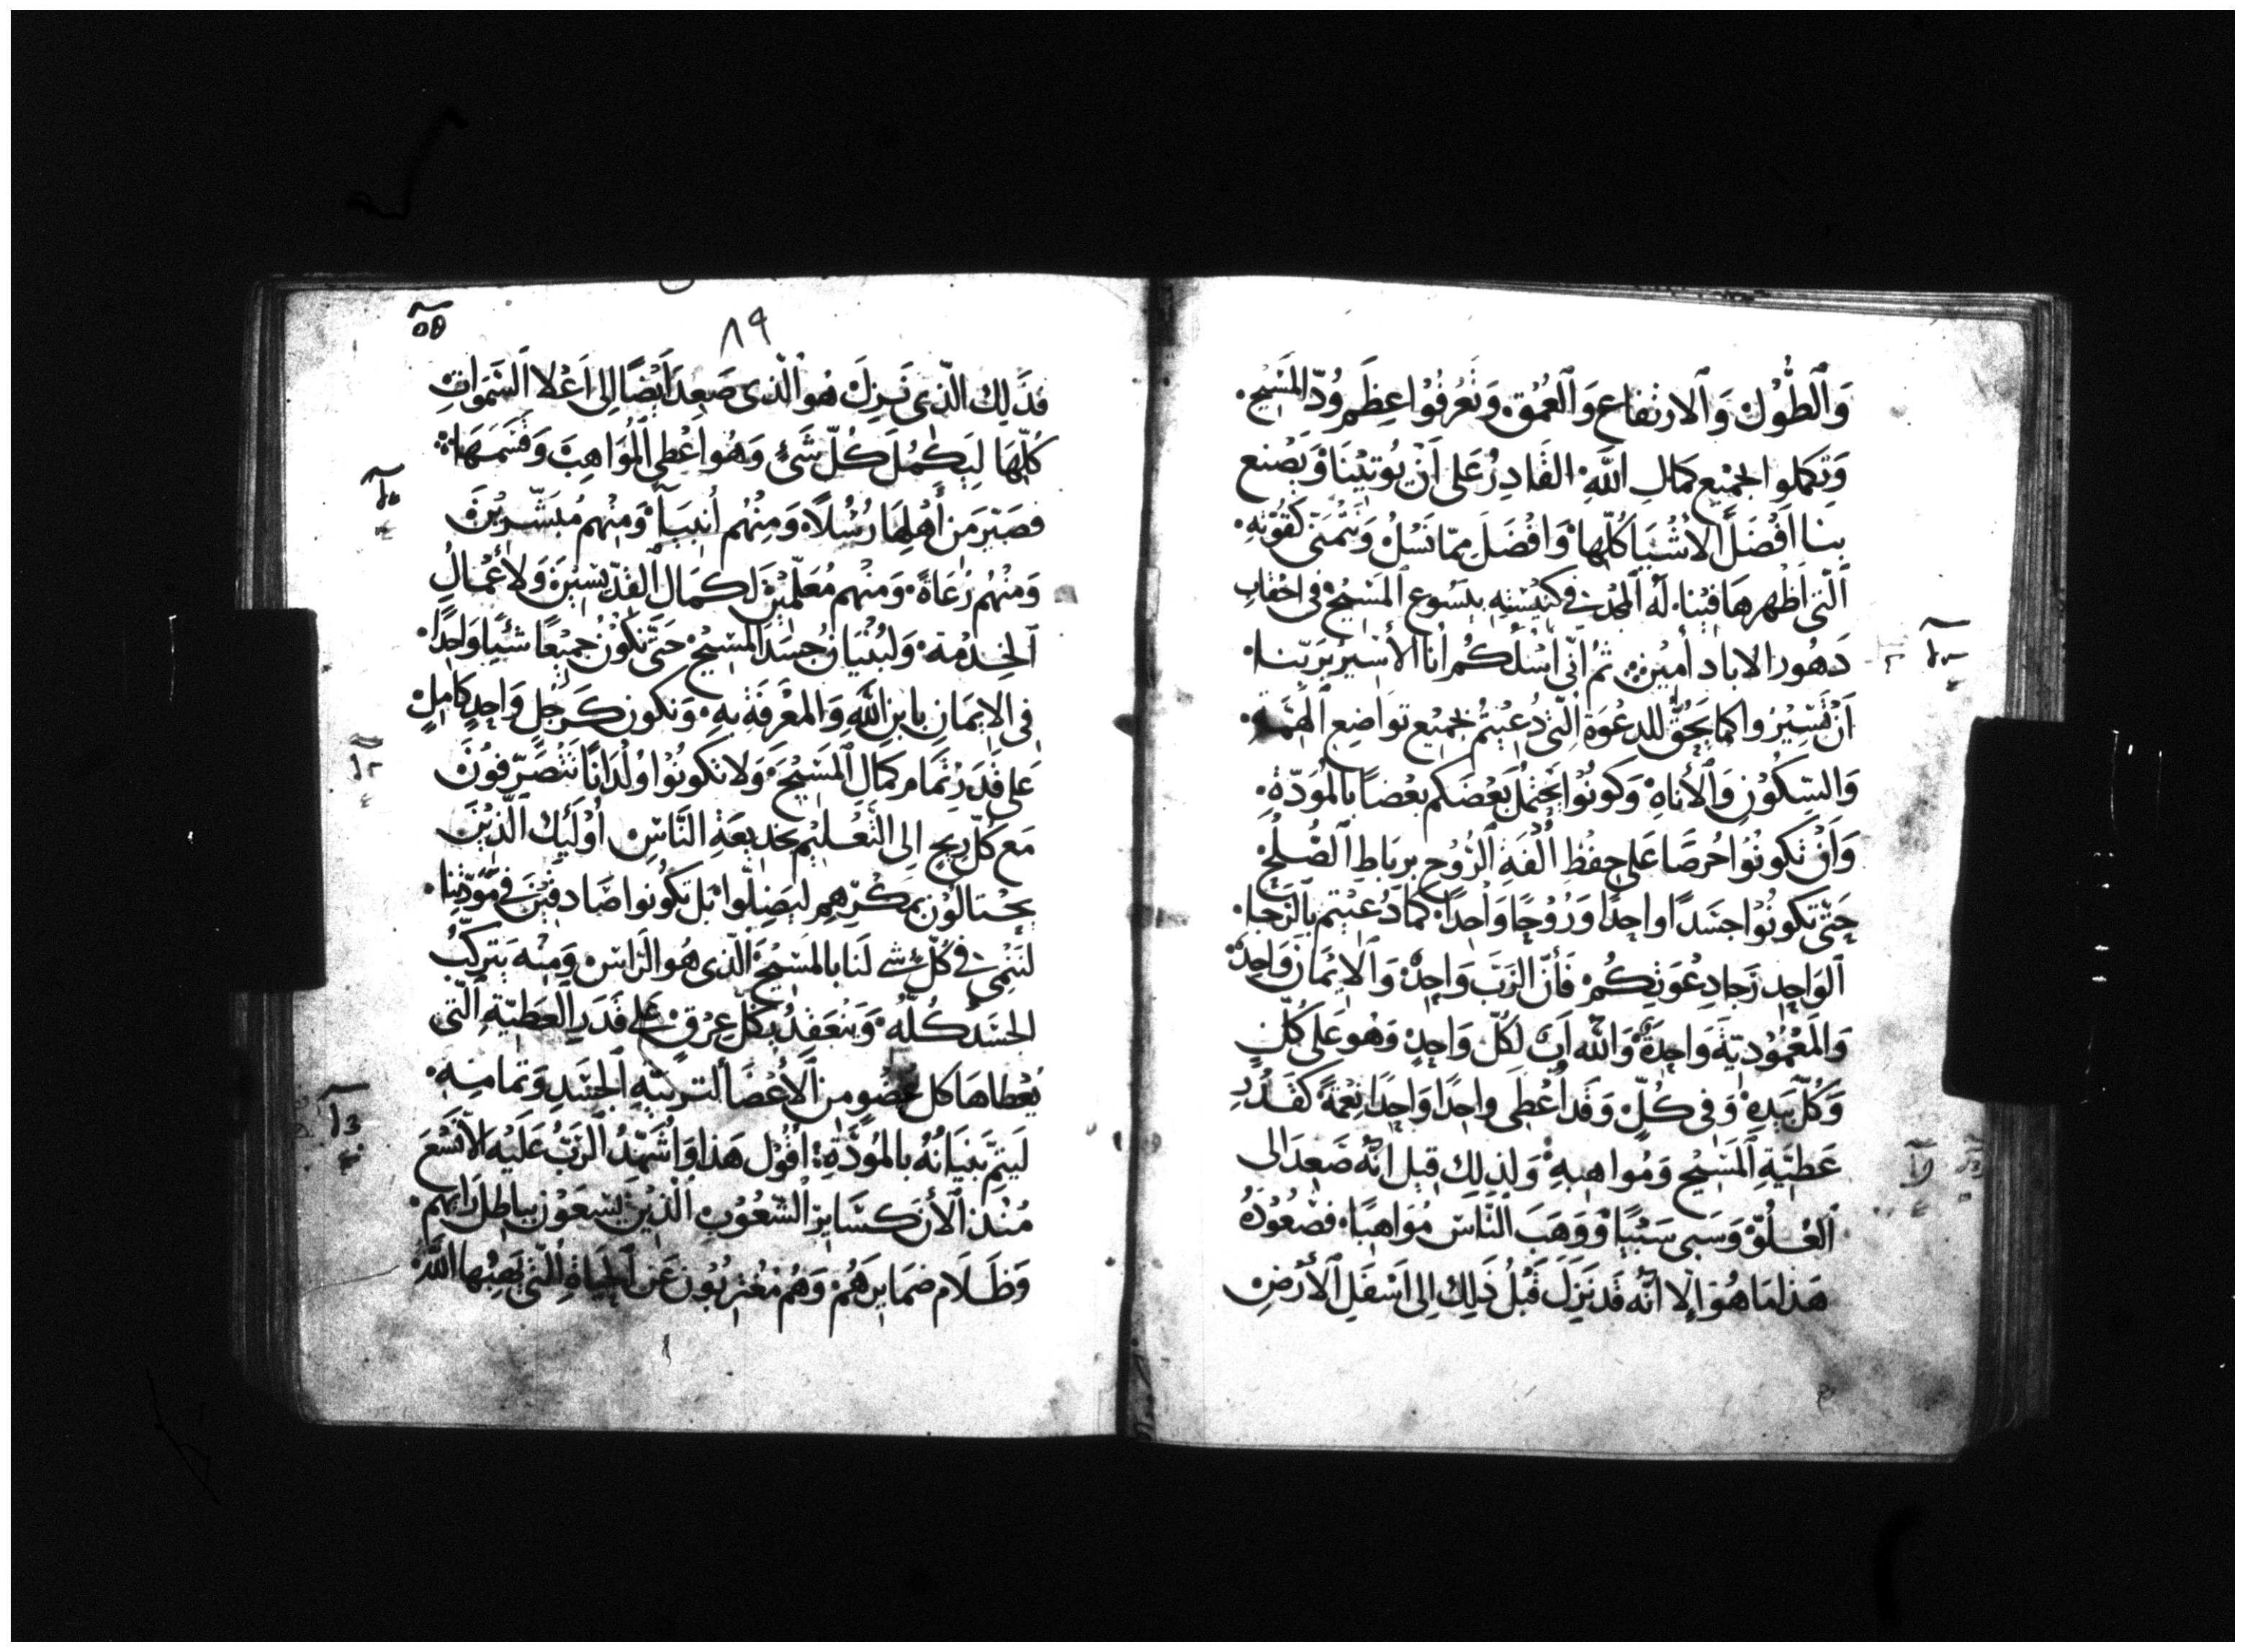 وَٱلطُّوْلْ وَٱلارتفاع وَٱلعُمْقِ وَتَعْرِفُوْا عِظَم وُدّ المَسِيح.
وَتِكملوا الجمْيع كمَالِ اللّٰهِ القَادِرُ عَلى اَنْ يُوتِيْنَا وَيَصْنع
بِنا اَفْضَلَ الأشْيَا كُلّهَا وَافْضَلَ مِمّا نَسَلْ وَنتْمَنىٰ كَقُوّتِهِ.
الَّتى اَظْهرهَا فيْنا. لَهُ المَجْد فى كنِيْسَتِهِ بيَسُوع المَسِيْحْ فى احْقابِ
دَهُور الاباد أميْنْ ثمُ انّى اَسْلَكُم أنا الأسِيْر بَربّنا.
اَنْ تَسِيْرُوا كما يَحِقُّ للدعْوَة الّتى دُعِيْتُمْ بجَميْع تواضِع الهمّه.
وَالسّكوْنِ وَٱلأناهِ وَكونُوْا يَحْتملُ بَعْضَكم بَعْضًا بالمُوَدّةِ.
وَاَنْ تَكونُوْا حُرصًا عَلى حِفظِ اُلْفَةِ ٱلرُّوْح برِبَاطِ ٱلصُّلحْ
حَتّى تَكونُوْا جسَدًا واحِدًا وَرُوْحًا وَاحْدًا. كمَا دُعِيْتم بالرّجا.
ٱلوَاحِد رَجا دِعْوَتِكُمْ فَأنّ الرَبّ وَاحِدْ وَٱلايْمَان وَاحِدْ
وَالمعْمُوْديّة وَاحِدَةْ وَاللّٰه اَبْ لكُلّ وَاحِدٍ وَهُو عَلى كُلّ
وَكُلّ بيَدِهْ وَفى كُلٍّ وَقَد اُعْطِى واحِدًا وَاحِدًا نِعْمَةً كقَدْرِ
عَطيّةِ ٱلمَسِيْح وَمُواهِبهِ وَلِذلِكَ قِيْل اِنّه صَعِدَ الى
ٱلعُلُوّ وَسَبى سَبْيًا وَوَهَبَ النّاسَ مُوَاهِبًا. فصُعُوْدُهُ
هَذا مَا هُوَ اِلا اَنَّه قَد نَزِلَ قَبْلُ ذَلِكَ اِلى اَسْفَلِ ٱلأرْضِ
٨٩
فذَلِك الّذِى نَزِلَ هُو الَّذى صَعِدَ اَيْضًا الى اَعْلا السَّمَواتِ
كُلّهَا لِيَكمُلَ كُلّ شَىْءٍ وَهُو اَعْطى المُوَاهِبَ وَقسَمَهَا
فصَيّرَ مَن أهْلِهَا رُسُلًا وَمِنْهُم اَنبيَأ وَمِنْهُم مُبَشّرِيْنَ
وَمِنْهُم رُعَاةً وَمِنْهُم مُعَلّمِيْنَ لَكمَال القِدّيسِيْنَ وَلأعْمَالِ
ٱلخِدْمَة وَلبُنْيَانُ جسَدَ المسِيْحْ حَتّى نَكُوْنُ جَميْعًا شَيًا وَاحِدًا.
فى الايمَانِ بابن اللّٰهِ وَالمعْرِفَة بهِ وَنَكون كَرَجُلٍ وَاحِدٍ كامِلٍ
عَلى قَدَرِ تمَام كمَالِ المَسِيْحَ وَلا نكونُوْا وُلْدَانًا نَتْصَرّفُوْنَ
مَع كُلّ رِيح الى التّعْليْم بخدِيعَةِ النَّاسْ اُوْلَئِك الّذِيْنَ
يحْتالُوْن بمكْرِهِم ليَضِلّوا بَل نكُونوا صَادقيْنَ فى مَوَدّتِنا.
لنَنْمِى فى كُلّ شى لَنا بالمَسِيْحْ الّذى هُو الرَاسْ وَمِنْهُ يَتركّبُ
الجَسَد كُلّه وَيَنْعَقِدُ بكُلّ عِرْقٍ عَلى قَدَرِ العَطِيّة الّتى
يُعْطاهَا كل عُضوٍ من ٱلأعْضَا لتربيةِ الجَسَدِ وَتَمامِه.
لَيتمَّ بنيَانُهُ بالمُوَدّةِ اَقُوْل هَذا وَاُشَهّدُ الرَبّ عَلَيْه اَلاّ نَسْعَ
مُنْذ ٱلأنَ كسَايِر الشّعُوْبِ الّذِيْنَ يَسْعَوْن بباطِل رَايهم.
وَظَلام ضمَايرهُمْ وَهُم مُغْتربُوْن عَن الحيَاةِ الّتى يَهِبُها اللّٰهُ